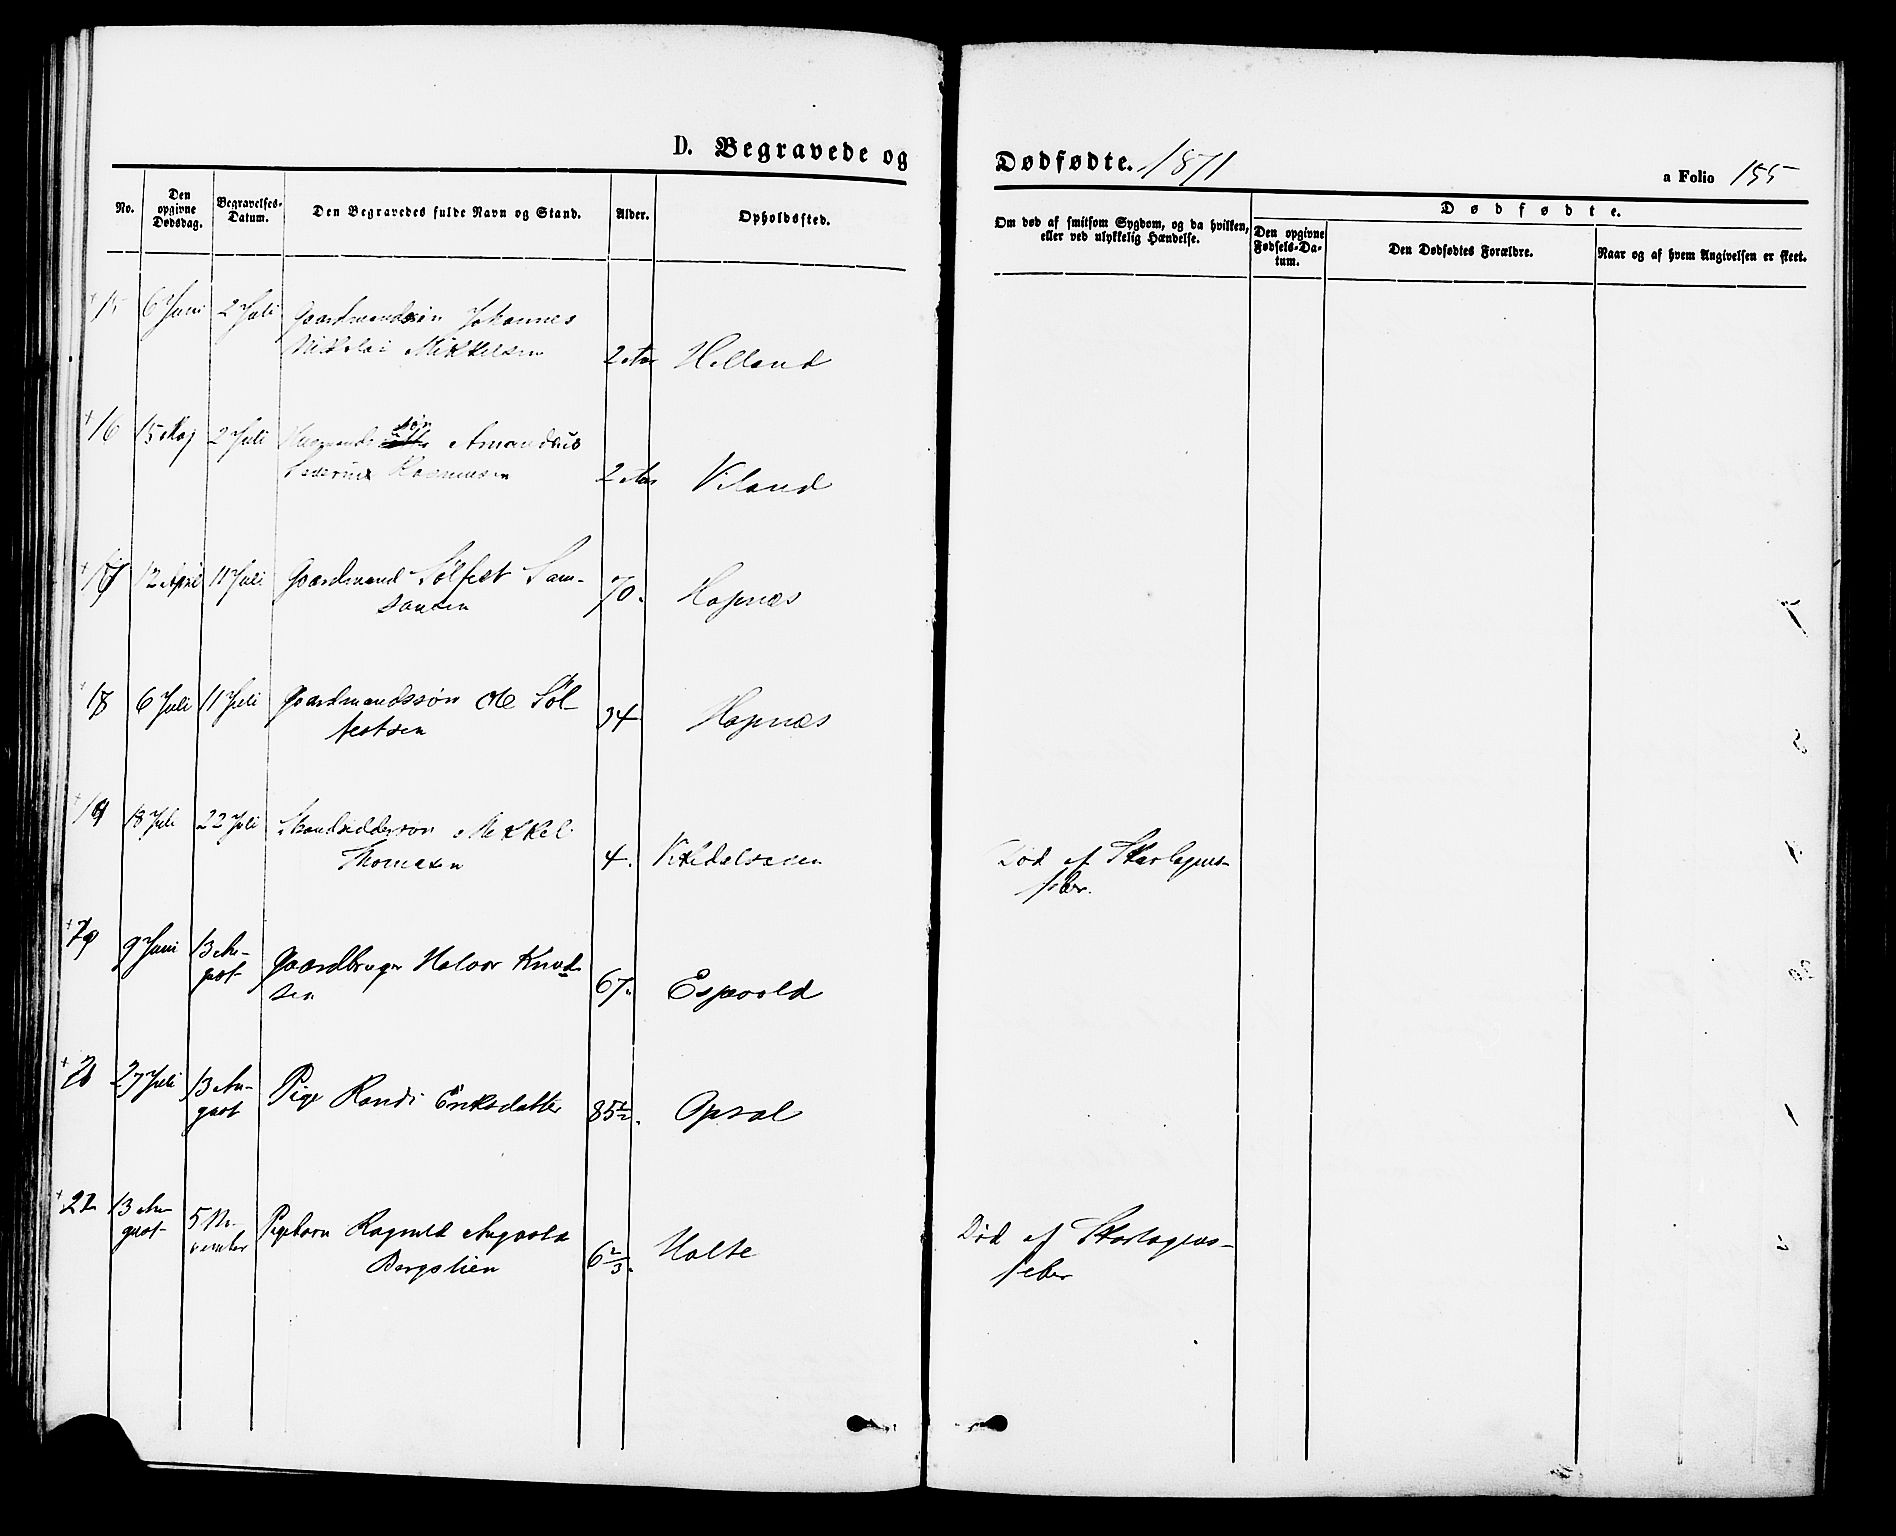 D. Begravede og
Dødfødte. 1871
a Folio 155
No.
Den opgivne Dødsdag.
Begravelses-Datum.
Den Begravedes fulde Navn og Stand.
Alder.
Opholdssted.
Om død af smitsom Sygdom, og da hvilken,
eller ved ulykkelig Hændelse.
Dødfødte.
Den opgivne Fødsels-Da-tum.
Den Dødfødtes Forældre.
Naar og af hvem Angivelsen er skeet.
15 6 Juni 2 Juli Gaardmandssøn Johannes
Nikolai Mikkelsen 2 Aar Helland
16 15 Maj 2 Juli Husmands søn Amandus
Severin Rasmussen 2 Aar Viland
17 12 April 11 Juli Gaardmand Sølfest Sam-
sonsen 70. Hopnæs
18 6 Juli 11 Juli Gaardmandssøn Ole Søl-
festsen 34 Hopnæs
19 18 Juli 22 Juli Strandsidderson Mikkel
Thomasen 4. Kildalsosen Død af Skarlagens-
feber.
20 9 Juni 13 Au-
gust Gaardbruger Halvor Knud-
sen 67. Espevold
21 27 Juli 13 Au-
gust Pige Randi Eriksdatter 85½. Opsal
22 13 Au-
gust 5 No-
vember Pigebarn Ragnild Augusta
Bergslien 6⅔. Holte Død af Skarlagens-
feber